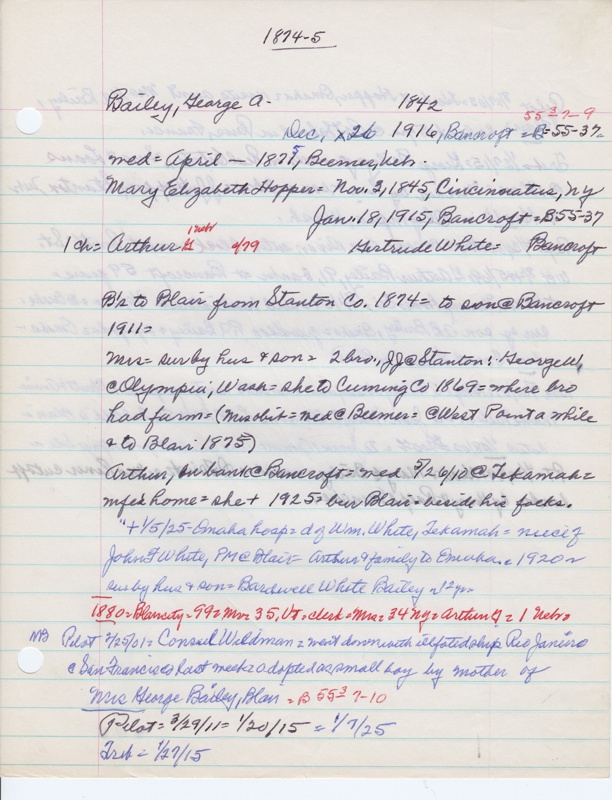 1874-5
Bailey, George A. 1842
55-3 7-9
Dec, x26 1916, Bancroft = B=55-37
med = April — 1875, Beemer, Neb.
Mary Elizabeth Hopper = Nov. 3, 1845, Cincinnatus, NY
Jan. 18, 1915, Bancroft = B55-37
1 ch = Arthur G 1 nebr 4/79 Gertrude White = Bancroft
B/z to Blair from Stanton Co. 1874 = to son @ Bancroft
1911 =
Mrs = sur by hus & son = 2 bro., JJ @ Stanton; George W,
@ Olympia, Wash = she to Cuming Co 1869 = where bro
had farm = (Mrs obit = med @ Beemer = @ West Point a while
& to Blair 1875)
Arthur, in bank @ Bancroft = med 5/26/10 @ Tekamah =
mfe's home = she + 1925 = bur Blair = beside his folks.
"+ 1/5/25 - Omaha hosp = d of Wm. White, Tekamah = niece of
John F White, PM @ Blair = Arthur & family to Omaha c 1920 =
sur by hus & son = Bardwell White Bailey = 12 yr.
1880 = Blair city = 99 = Mr = 35, Vt = clerk = Mrs = 34 NY = Arthur G = 1 Nebr
NB Pilot 2/25/01 = Consul Wildman = went down with ill fated ship Rio Janiro
@ San Francisco last week = adopted as small boy by mother of
Mrs George Bailey, Blair = B 55-3 7-10
Pilot = 3/29/11 = 1/20/15 = 1/7/25
Trib = 1/27/15